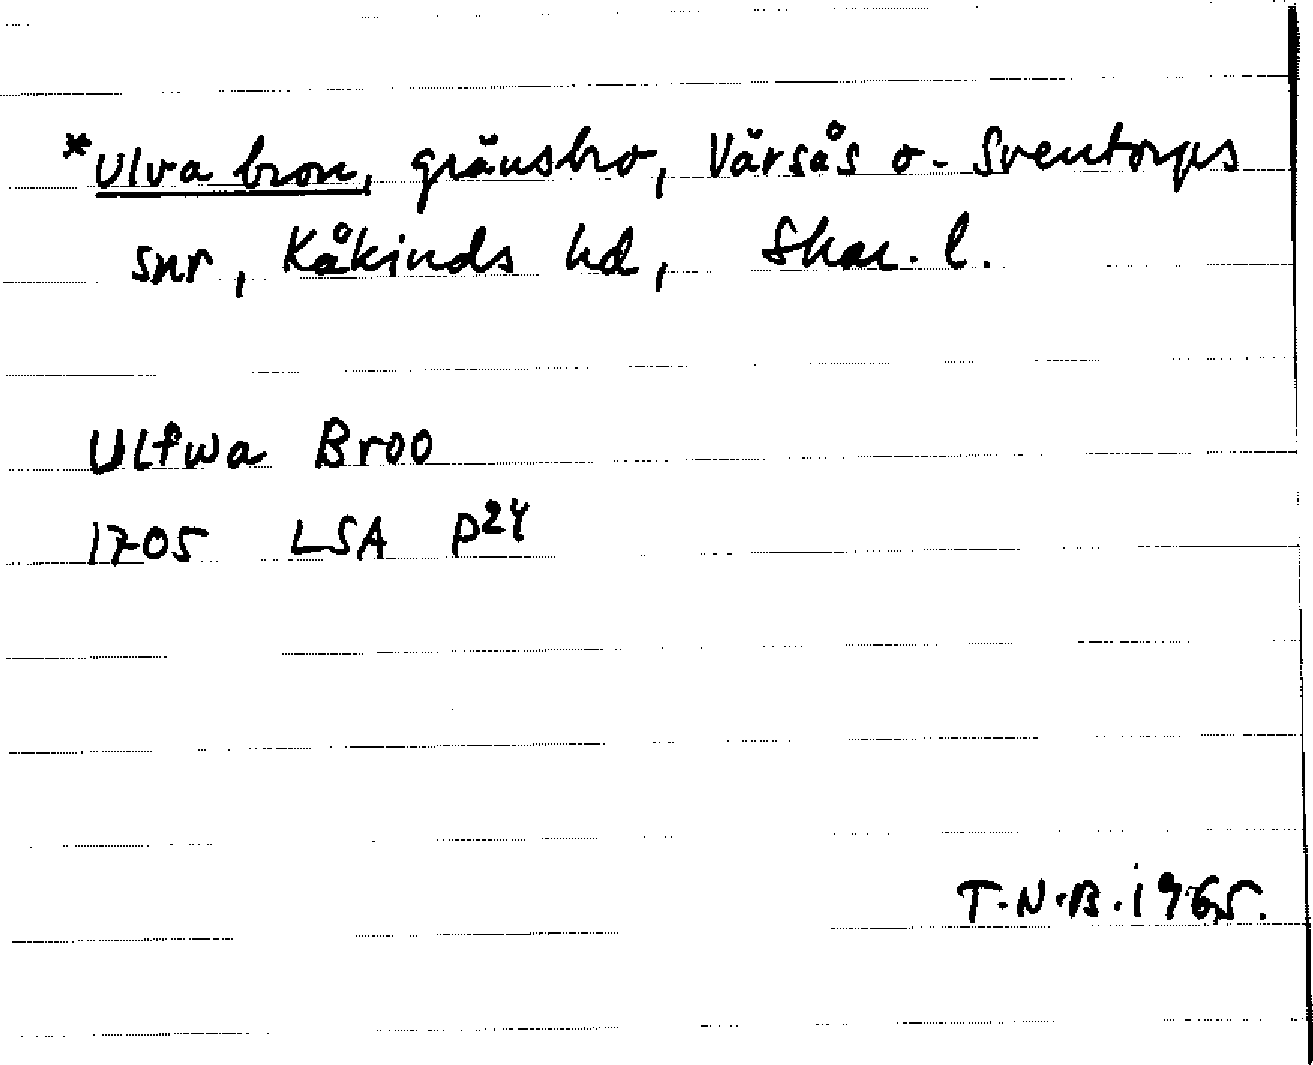 *Ulva bron, gränsbro, Värsås o. Sventorps
snr, Kåkinds hd, Skar. l.
Ulfwa Broo
1705 LSA P24
T.N.B. 1965.